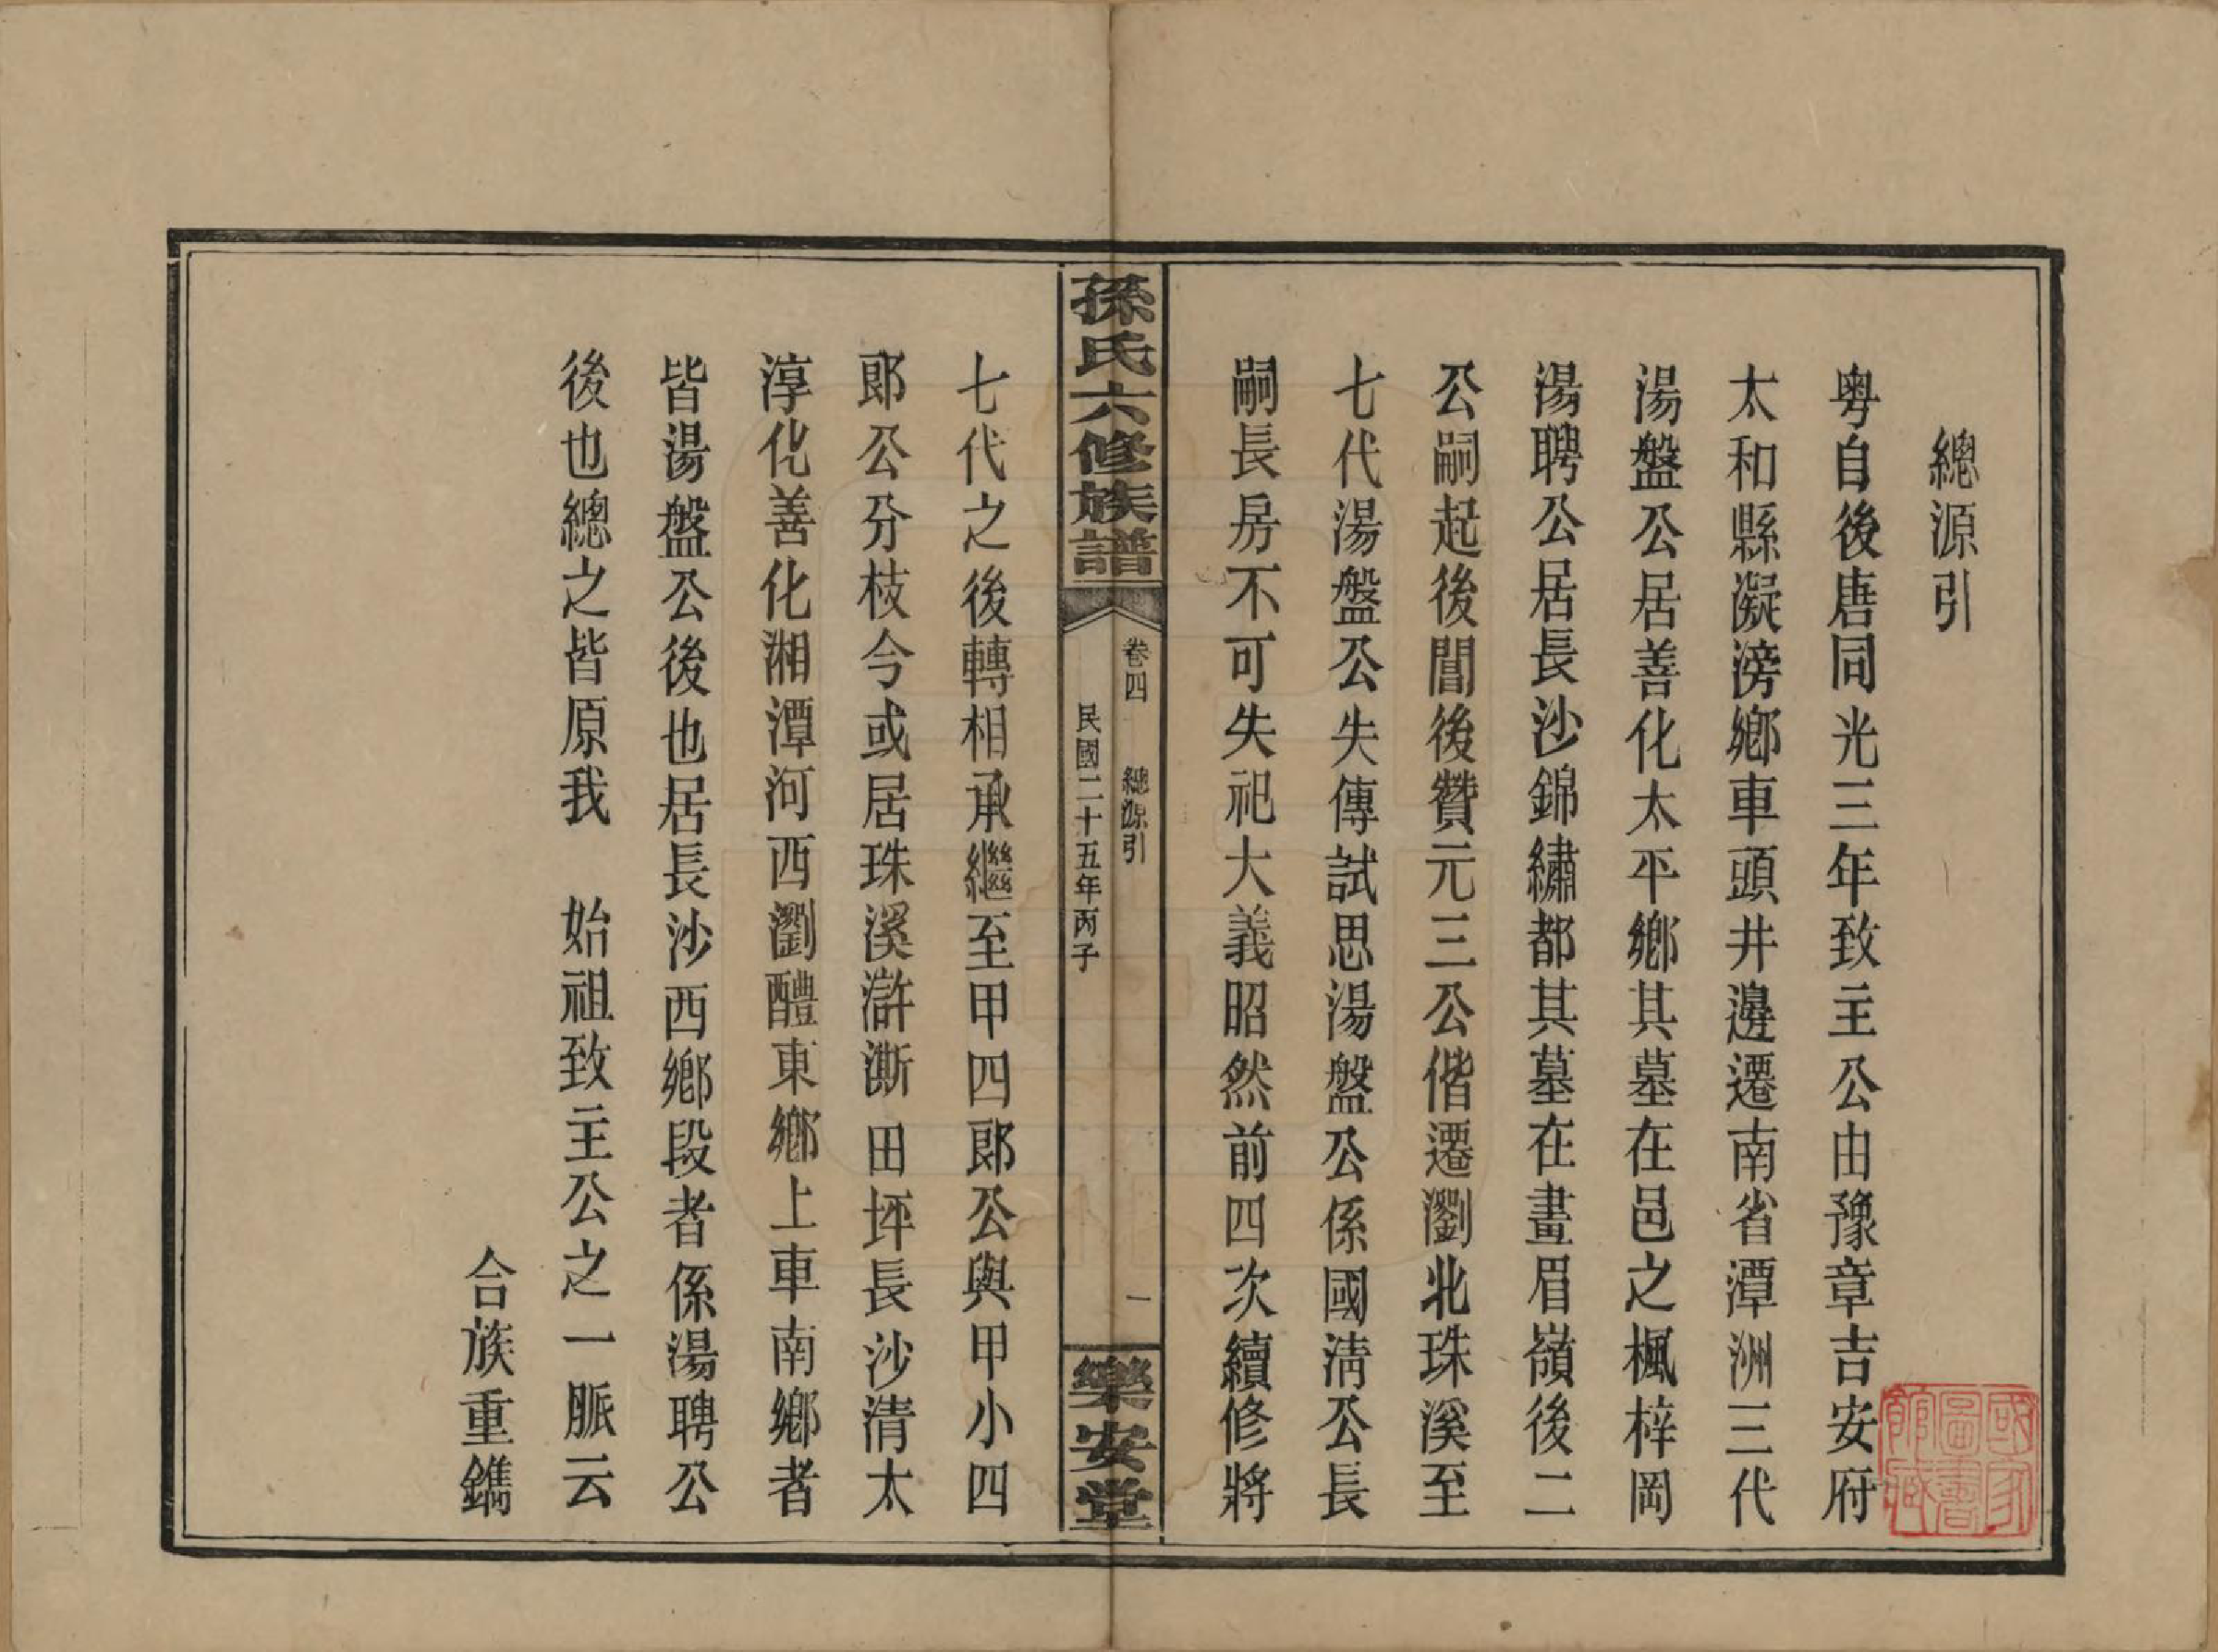 總源引
粵自後唐同光三年致主公由豫章吉安府
太和縣凝滂鄉車頭井邊遷南省潭洲三代
湯盤公居善化太平鄉其墓在邑之楓梓岡
湯聘公居長沙錦繡都其墓在畫眉嶺後二
公嗣起後閶後贊元三公偕遷瀏北珠溪至
七代湯盤公失傳試思湯盤公係國淸公長
嗣長房不可失祀大義昭然前四次續修將
孫氏六修族譜
卷四 總源引
民國二十五年丙子
一
樂安堂
七代之後轉相承繼至甲四郞公與甲小四
郞公分枝今或居珠溪滸澌田坪長沙清太
淳化善化湘潭河西瀏醴東鄉上車南鄉者
皆湯盤公後也居長沙西鄉段者係湯聘公
後也總之皆原我 始祖致主公之一脈云
合族重鐫
國家圖書館藏